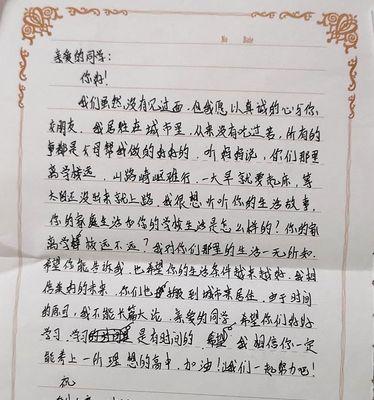 No Date
亲爱的同学:
你好!
我们虽然没有见过面,但我愿以真诚的心与你
交朋友。我居住在城市里,从来没有吃过苦,所有的
事都是父母帮我做的好好的。听妈妈说,你们那里
离学校远,山路崎岖难行,一大早就要起床,等
太阳还没出来就上路。我很想听听你的生活故事,
你的家庭生活和你的学校生活是怎么样的?你的家
离学校远不远?我对你们那里的生活一无所知,
希望你能告诉我,也希望你的生活条件越来越好,我相
信美好的未来,你们也能搬到城市来居住,由于时间
的原因,我不能长篇大论,亲爱的同学,希望你们好好
学习,学习是有时间的,我相信你一定
能考上一所理想的高中,加油!让我们一起努力吧!
祝